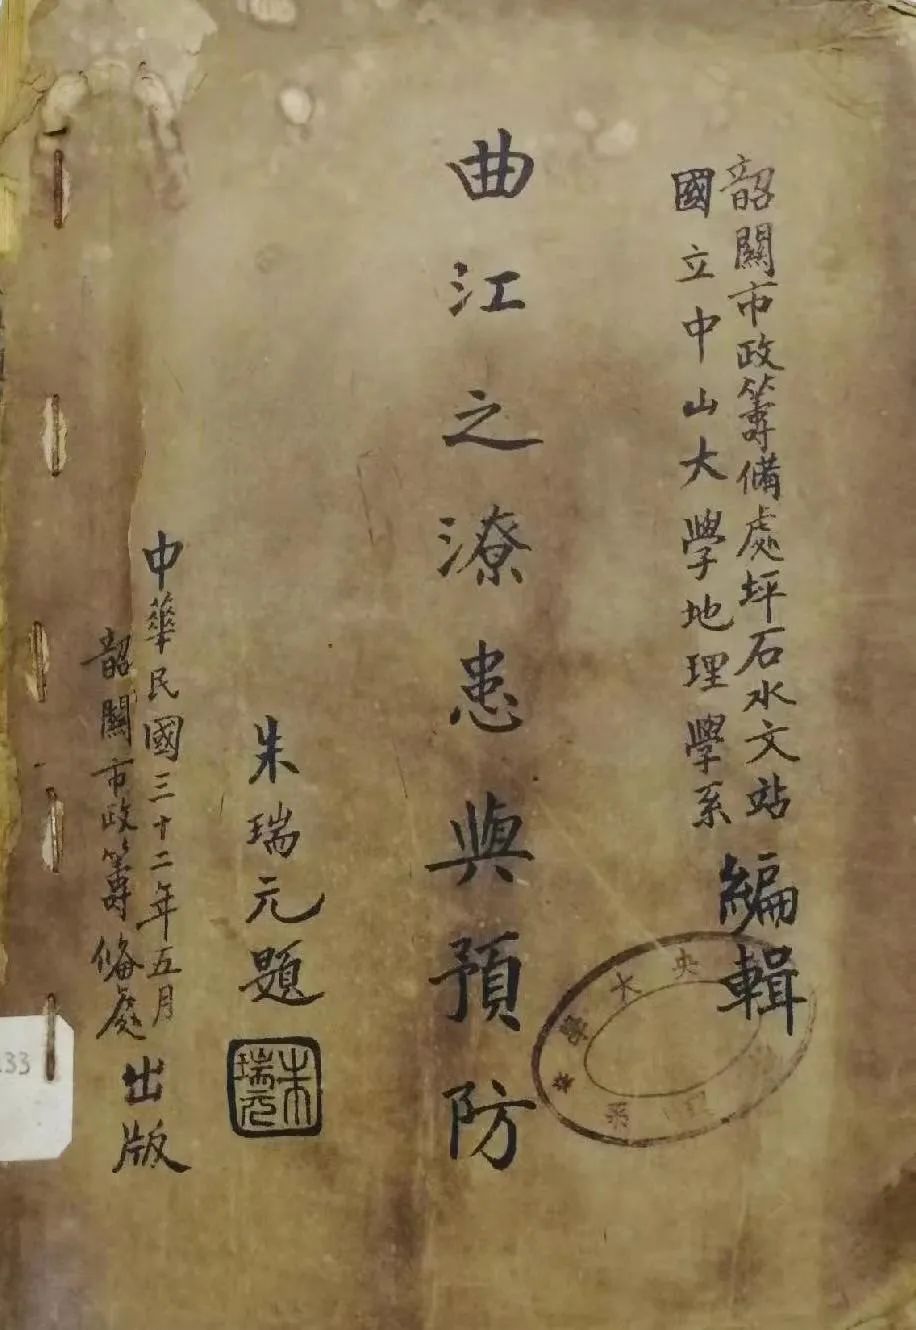 韶關市政籌備處坪石水文站
國立中山大學地理學系
編輯
曲江之潦患與預防
朱瑞元題
朱瑞元
中華民國三十二年五月
韶關市政籌備處
出版
央大學
系
33